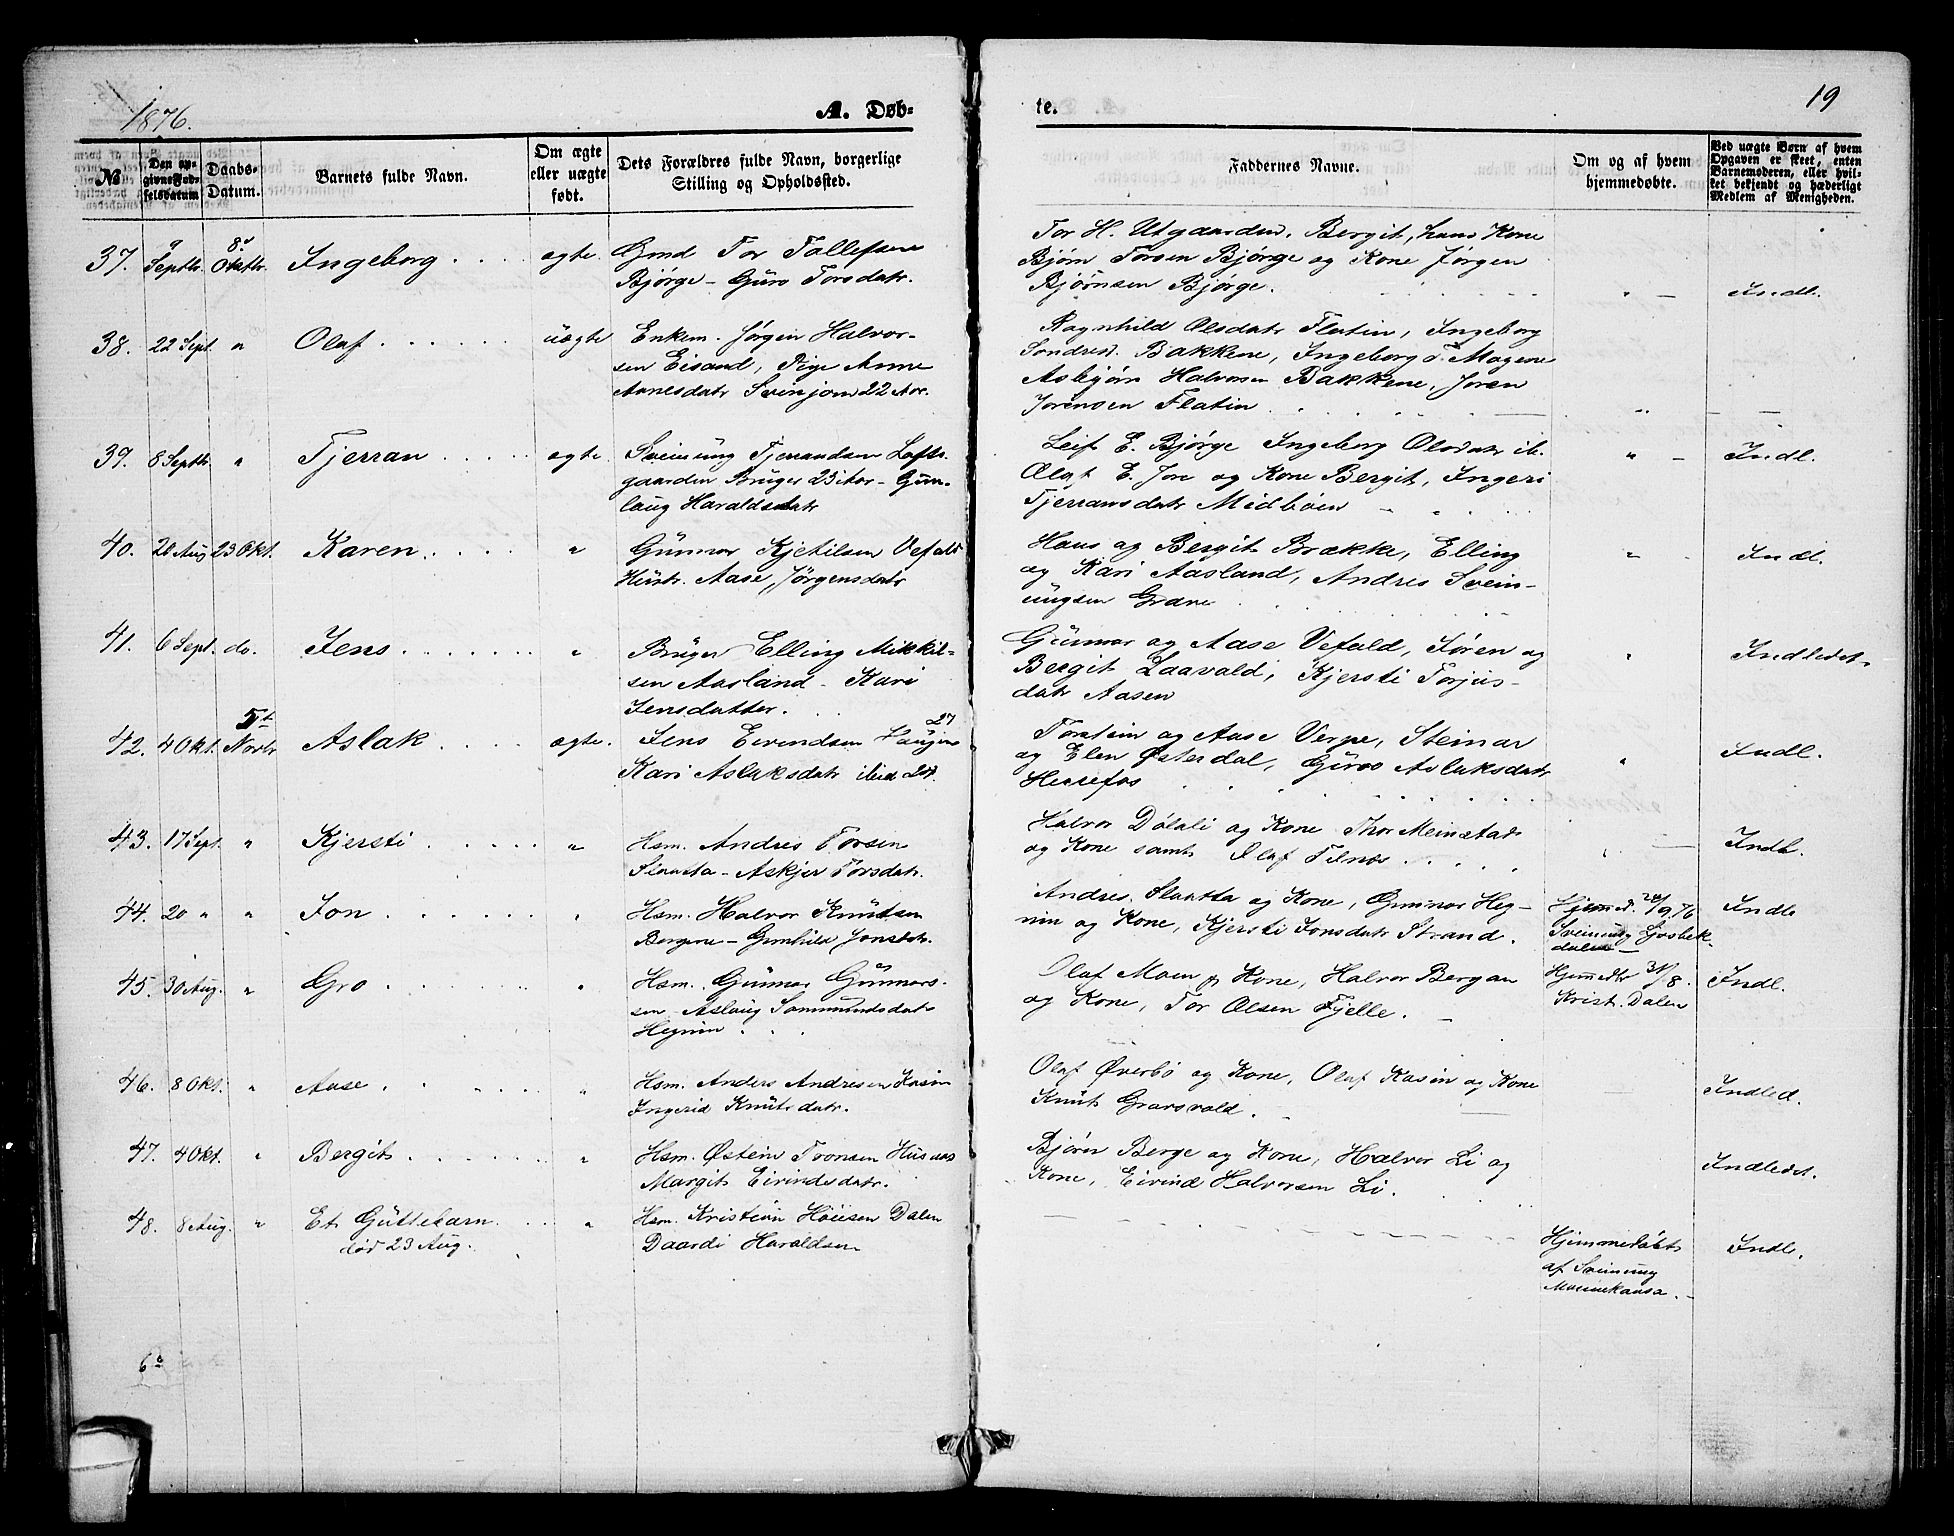 1876.
A. Døb-
te.
19
№
Den op-
givne Fød-
selsdatum
Daabs-
Datum.
Barnets fulde Navn.
Om ægte
eller uægte
født.
Dets Forældres fulde Navn, borgerlige
Stilling og Opholdssted.
Faddernes Navne.
Om og af hvem
hjemmedøbte.
Ved uægte Børn af hvem
Opgaven er skeet, enten
Barnemoderen, eller hvil-
ket bekjendt og hæderligt
Medlem af Menigheden.
37. 9 Septbr. 8de Oktbr. Ingeborg . . . . ægte. Gmd Tor Tollefsen
Bjørge - Guro Torsdatr.
Tor H. Utgaarden, Bergit, hans Kone
Bjørn Torsen Bjørge og Kone Jørgen
Bjørnsen Bjørge. " - Indl.
38. 22 Sept. " Olaf . . . . . uægte Enkem. Jørgen Halvor-
sen Eisand, Pige Anne
Aanesdatr Svinjom 22 Aar.
Ragnhild Olsdatr Flatin, Ingeborg
Sondresd. Bakkene, Ingeborg T. Mogene
Asbjørn Halvorsen Bakkene, Joren
Jorensen Flatin . . . . . " - -
39. 8 Septbr. " Tjerran . . . . ægte. Sveinung Tjerrandsen Lofts-
gaarden Bruger 25 Aar - Gun-
laug Haraldsdatr
Leif E. Bjørge Ingeborg Olsdatr ib.
Olaf E. Jore og Kone Bergit, Ingeri
Tjerransdatr Midbøen - " - Indl.
40. 20 Aug 23 Okt. Karen. . . . . " Gunnar Kjetilsen Vefald
Hustr. Aase Jørgensdatr
Hans og Bergit Brække, Elling
og Kari Aasland, Andres Svein-
ungsen Grave . . . . " - Indl.
41. 6 Sept. do. Jens . . . . . . " Bruger Elling Mikkel-
sen Aasland - Kari
Jensdatter.
Gunnar og Aase Vefald, Søren og
Bergit Laavald, Kjersti Torjus-
datr Aasen " Indledet-
42. 4 Okt. 5te Novbr Aslak . . . . ægte. Jens Eivendsen Haugen 27
Kari Aslaksdatr ibid 24.
Torstein og Aase Verpe, Steinar
og Elen Østerdal, Guro Aslaksdatr
Herrefos . . . . " Indl.
43. 17 Sept. " Kjersti . . . . . " Hsm. Andres Torsen
Slaatta - Askjer Torsdatr.
Halvor Dølali og Kone Thor Meinstad
og Kone samt Olaf Tilnes . . . " - Indl.
44. 20 " " Jon . . . . . " Hsm. Halvor Knutsen
Bergene - Gunhild Jonsdtr.
Andres. Slaatta og Kone, Gunnar Heg-
nin og Kone, Kjersti Jonsdatr Strand. Hjemmed. 20/9 76
Sveinung Ljosbek-
dalen - Indl.
45. 30 Aug. " Gro . . . . . . " Hsm. Gunnar Gunnars-
sen - Aslaug Sommundsdatr
Hegnin . .
Olaf Moen og Kone, Halvor Bergan
og Kone, Tor Olsen Fjelle. - Hjemmedbt 31/8.
Krist. Dalen Indl.
46. 8 Okt. " Aase . . . . . " Hsm. Anders Andresen Kasin
Ingerid Knutsdatr.
Olaf Øverbø og Kone, Olaf Kasin og Kone
Knut Graavald. - Indled.
47. 4 Okt. " Bergit . . . . . " Hsm. Østein Tronsen Husaas
Margit Eirindsdatr.
Bjørn Berge og Kone, Halvor Li og
Kone, Eivind Halvorsen Li. Indledet.
48. 8 Aug. " Et Guttebarn . . " Hsm. Kristian Dalen
død 23 Aug. Daardi Haraldsen
- - - - Hjemmedøbt
af Sveinung
Indl.